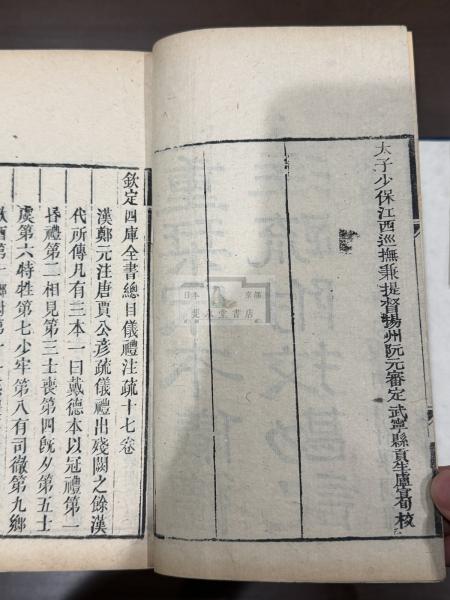 太子少保江西巡撫兼提督揚州阮元審定武寧縣貢生盧宣旬校
欽定四庫全書總目儀禮注疏十七卷
漢鄭元注唐賈公彥疏儀禮出殘闕之餘漢
代所傳凡有三本一曰戴德本以冠禮第一
昏禮第二相見第三士喪第四既夕第五士
虞第六特牲第七少牢第八有司徹第九鄉
日本 京都
堂書店